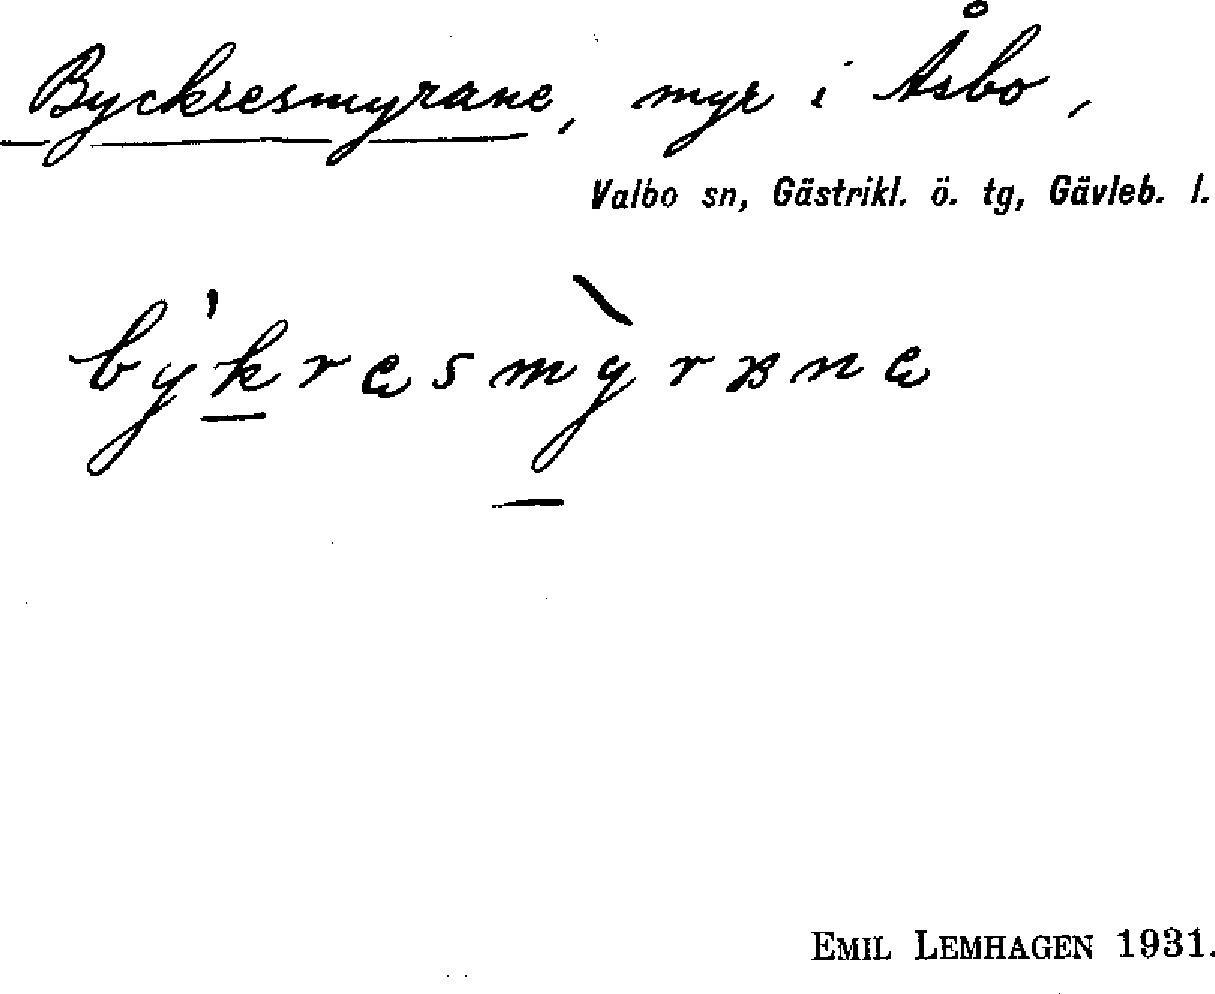 Byckresmyrane, myr i Åsbo,
Valbo sn, Gästrikl. ö. tg, Gävleb. l.
by'kręsmỳrʙnę
EMIL LEMHAGEN 1931.